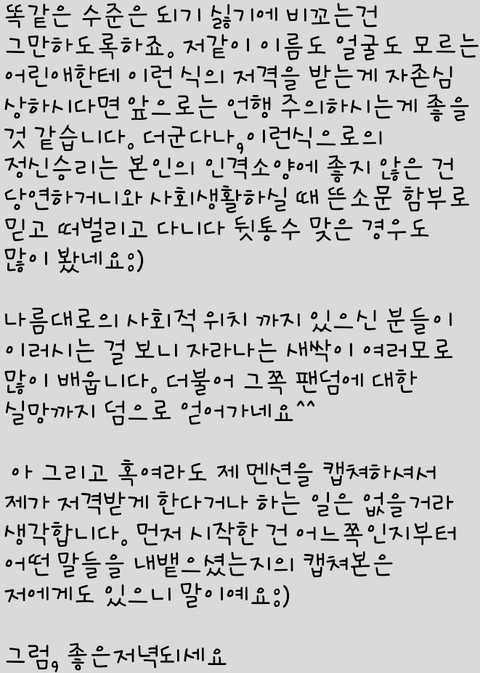 똑같은 수준은 되기 싫기에 비꼬는건
그만하도록하죠. 저같이 이름도 얼굴도 모르는
어린애한테 이런 식의 저격을 받는게 자존심
상하시다면 앞으로는 언행 주의하시는게 좋을
것 같습니다. 더군다나,이런식으로의
정신승리는 본인의 인격소양에 좋지 않은 건
당연하거니와 사회생활하실 때 뜬소문 함부로
믿고 떠벌리고 다니다 뒷통수 맞은 경우도
많이 봤네요:)
나름대로의 사회적 위치 까지 있으신 분들이
이러시는 걸 보니 자라나는 새싹이 여러모로
많이 배웁니다. 더불어 그쪽 팬덤에 대한
실망까지 덤으로 얻어가네요^^
아 그리고 혹여라도 제 멘션을 캡쳐하셔서
제가 저격받게 한다거나 하는 일은 없을거라
생각합니다. 먼저 시작한 건 어느쪽인지부터
어떤 말들을 내뱉으셨는지의 캡쳐본은
저에게도 있으니 말이예요:)
그럼, 좋은저녁되세요